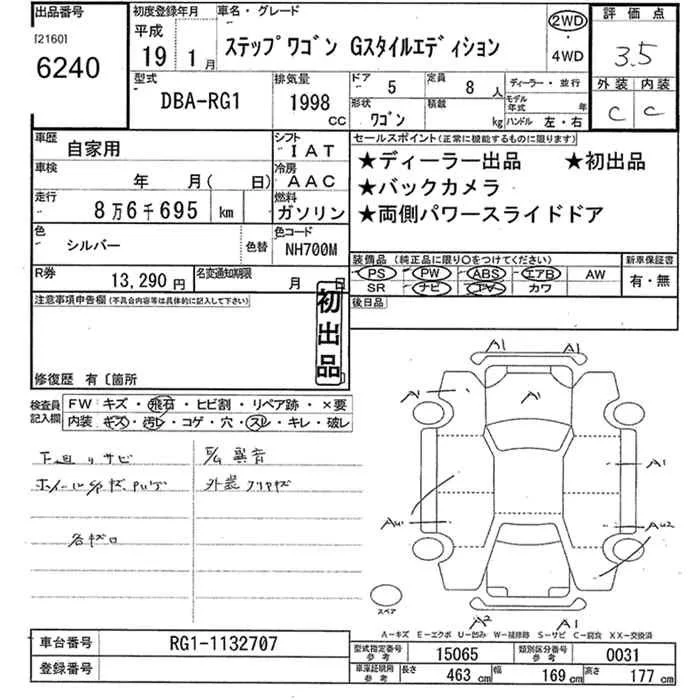 出品番号
[2160]
6240
初度登録年月
平成
19 1月
車名・グレード
ステップワゴン Gスタイルエディション
2WD
・
4WD
評価点
3.5
外装 内装
C C
型式
DBA-RG1
排気量
1998
CC
ドア 5
定員 8人
ディーラー・並行
形状 ワゴン
積載 kg
モデル年式 年
ハンドル 左・右
車歴
自家用
シフト
IAT
車検
年 月( 日)
冷房
AAC
走行
8万6千695 km
燃料
ガソリン
色
シルバー
色替
色コード
NH700M
R券
13,290円
名変通知期限
月 日
セールスポイント(正常に機能するものに限ります)
★ディーラー出品 ★初出品
★バックカメラ
★両側パワースライドドア
装備品(純正品に限り○をつけてください)
新車保証書
PS PW ABS エアB AW
SR ナビ カワ
有・無
後日品
注意事項申告欄(不具合内容等は具体的に記入して下さい)
初出品
修復歴 有〔箇所
検査員記入欄
FW キズ・飛石・ヒビ割・リペア跡・×要
内装 キズ・汚レ・コゲ・穴・スレ・キレ・破レ
下回りサビ
異音
各キズ
A1 A1
A1
A2 A1
スペア
A-キズ E-エクボ U-凹み W-補修跡 S-サビ C-腐食 XX-交換済
車台番号
RG1-1132707
登録番号
型式指定番号
参考
15065
類別区分番号
参考
0031
車庫証明用
参考
長さ 463 cm
幅 169 cm
高さ 177 cm